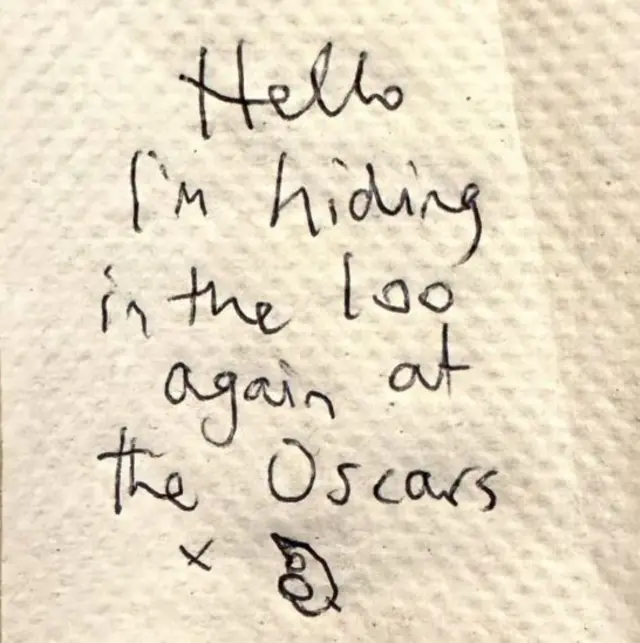 Hello
I'm hiding
in the loo
again at
the Oscars
x